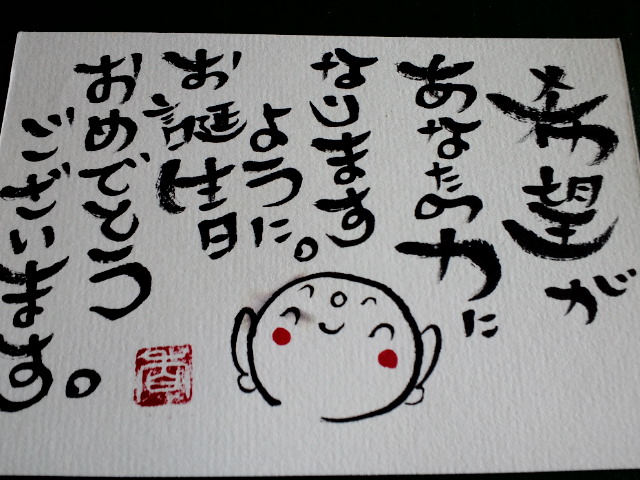 希望が
あなたの力に
なります
ように。
お誕生日
おめでとう
ございます。
香